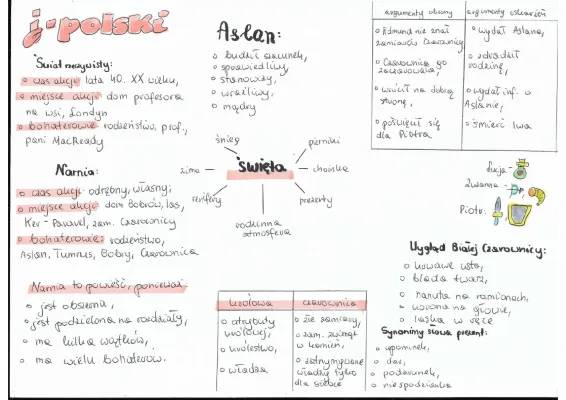 j. polski
Świat rzeczywisty:
o czas akcji: lata 40. XX wieku,
o miejsce akcji: dom profesora
na wsi, Londyn
o bohaterowie: rodzeństwo, prof.,
pani MacReady
Narnia:
o czas akcji: odrębny, własny;
o miejsce akcji: dom Bobrów, las,
Ker-Paravel, zam. Czarownicy
o bohaterowie: rodzeństwo,
Aslan, Tumnus, Bobry, Czarownica
Narnia to powieść, ponieważ:
o jest obszerna,
o jest podzielona na rozdziały,
o ma kilka wątków,
o ma wielu bohaterów.
Aslan:
o budził szacunek,
o sprawiedliwy,
o stanowczy,
o wrażliwy,
o mądry
święta
śnieg
pierniki
zima
choinka
prezenty
rodzinna
atmosfera
królowa
o atrybuty
królowej,
o królestwo,
o władza
czarownica
o złe zamiary,
o zam. zwierząt
w kamień,
władzy tylko
dla siebie
argumenty obrony
o Edmund nie znał
zamiarów Czarownicy
o Czarownica go
zaczarowała,
o wrócił na dobrą
stronę,
o poświęcił się
dla Piotra
argumenty oskarżeń
o wydał Aslana,
o zdradził
rodzinę,
o wydał inf. o
Aslanie,
o śmierć lwa
Łucja-
Zuzanna-
Piotr-
Wygląd Białej Czarownicy:
o krwawe usta,
o blada twarz,
o narzuta na ramionach,
o korona na głowie,
o laska w ręce
Synonimy słowa prezent:
o upominek,
o dar,
o podarunek,
o niespodzianka